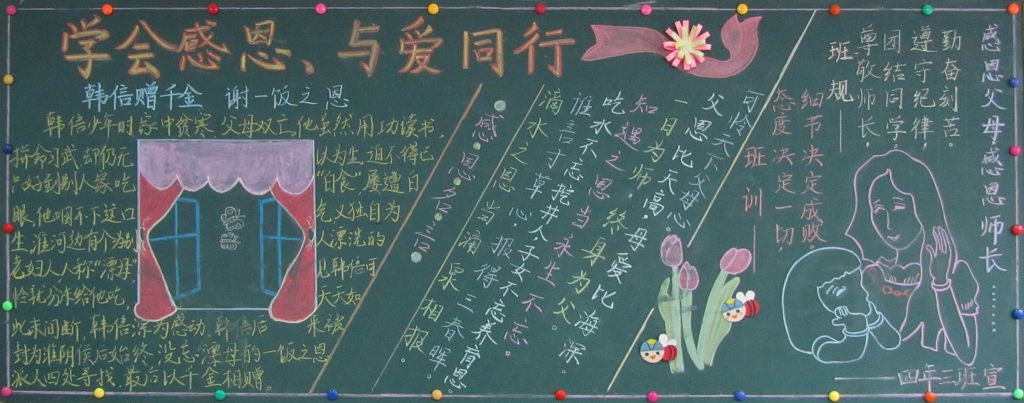 学会感恩、与爱同行
韩信赠千金 谢一饭之恩
韩信少年时家中贫寒,父母双亡,他虽然用功读书、
拼命习武,却仍无以为生,迫不得已
只好到别人家吃"白食",屡遭白
眼,他咽不下这口气,又独自为
生,淮河边有个为人漂洗的
老妇人人称"漂母"见韩信可
怜就分米给他吃,天天如
此未间断,韩信深为感动,韩信后来被
封为淮阴侯后始终没忘漂母的一饭之恩
派人四处寻找,最后以千金相赠。
感恩名言
可怜天下父母心。
父恩比天高,母爱比海深。
一日为师,终身为父。
知遇之恩当永生不忘。
吃水不忘挖井人,子女不忘养育恩。
谁言寸草心,报得三春晖。
滴水之恩,当涌泉相报。
感恩父母感恩师长……
勤奋刻苦。
遵守纪律,
团结同学,
尊敬师长,
班规——
细节决定成败。
态度决定一切
——班训——
——四年三班宣